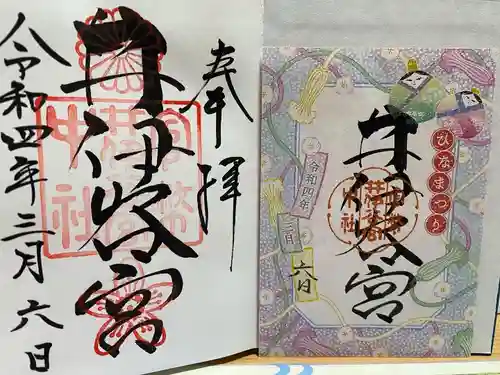 奉拝
井伊谷宮
令和四年三月六日
官幣
中社
ひなまつり
井伊谷宮
令和四年
三月
六日
中社